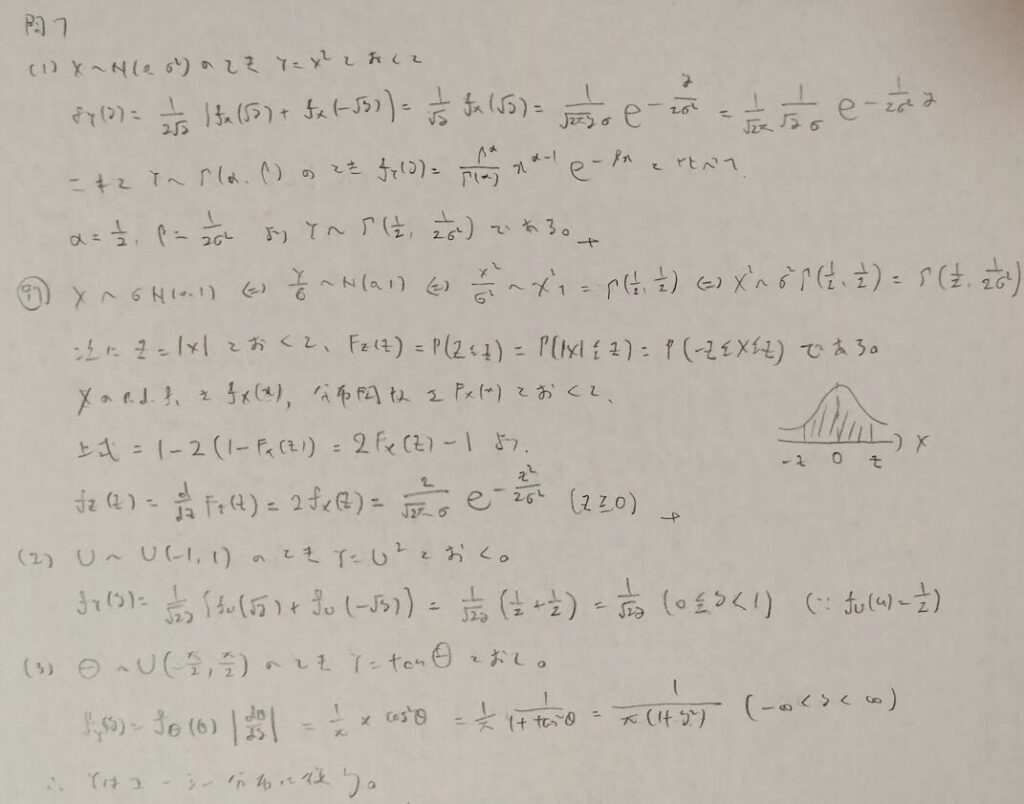 問7
(1) X ~ N(0, σ²) のとき Y = X² とおくと
f_Y(y) = 1/(2√y) {f_X(√y) + f_X(-√y)} = 1/√y f_X(√y) = 1/(√(2πy) σ) e^(-y/(2σ²)) = 1/√(2π) 1/(√y σ) e^(-1/(2σ²) y)
一方で Y ~ Γ(α, β) のとき f_Y(y) = β^α/Γ(α) x^(α-1) e^(-βx) と比べて,
α = 1/2, β = 1/(2σ²) より Y ~ Γ(1/2, 1/(2σ²)) である。
別 X ~ σN(0,1) ⇔ X/σ ~ N(0,1) ⇔ X²/σ² ~ χ²₁ = Γ(1/2, 1/2) ⇔ X² ~ σ²Γ(1/2, 1/2) = Γ(1/2, 1/(2σ²))
次に Z = |X| とおくと、F_Z(z) = P(Z ≦ z) = P(|X| ≦ z) = P(-z ≦ X ≦ z) である。
X の p.d.f. を f_X(x), 分布関数を F_X(x) とおくと、
上式 = 1 - 2(1 - F_X(z)) = 2F_X(z) - 1 より.
-z 0 z X
f_Z(z) = d/dz F_Z(z) = 2f_X(z) = 2/(√(2π) σ) e^(-z²/(2σ²)) (z ≧ 0)
(2) U ~ U(-1, 1) のとき Y = U² とおく。
f_Y(y) = 1/(2√y) {f_U(√y) + f_U(-√y)} = 1/(2√y) (1/2 + 1/2) = 1/(2√y) (0 ≦ y < 1) (∵ f_U(u) = 1/2)
(3) Θ ~ U(-π/2, π/2) のとき Y = tanΘ とおく。
f_Y(y) = f_Θ(θ) |dθ/dy| = 1/π × cos²θ = 1/π 1/(1 + tan²θ) = 1/(π(1 + y²)) (-∞ < y < ∞)
∴ Yはコーシー分布に従う。